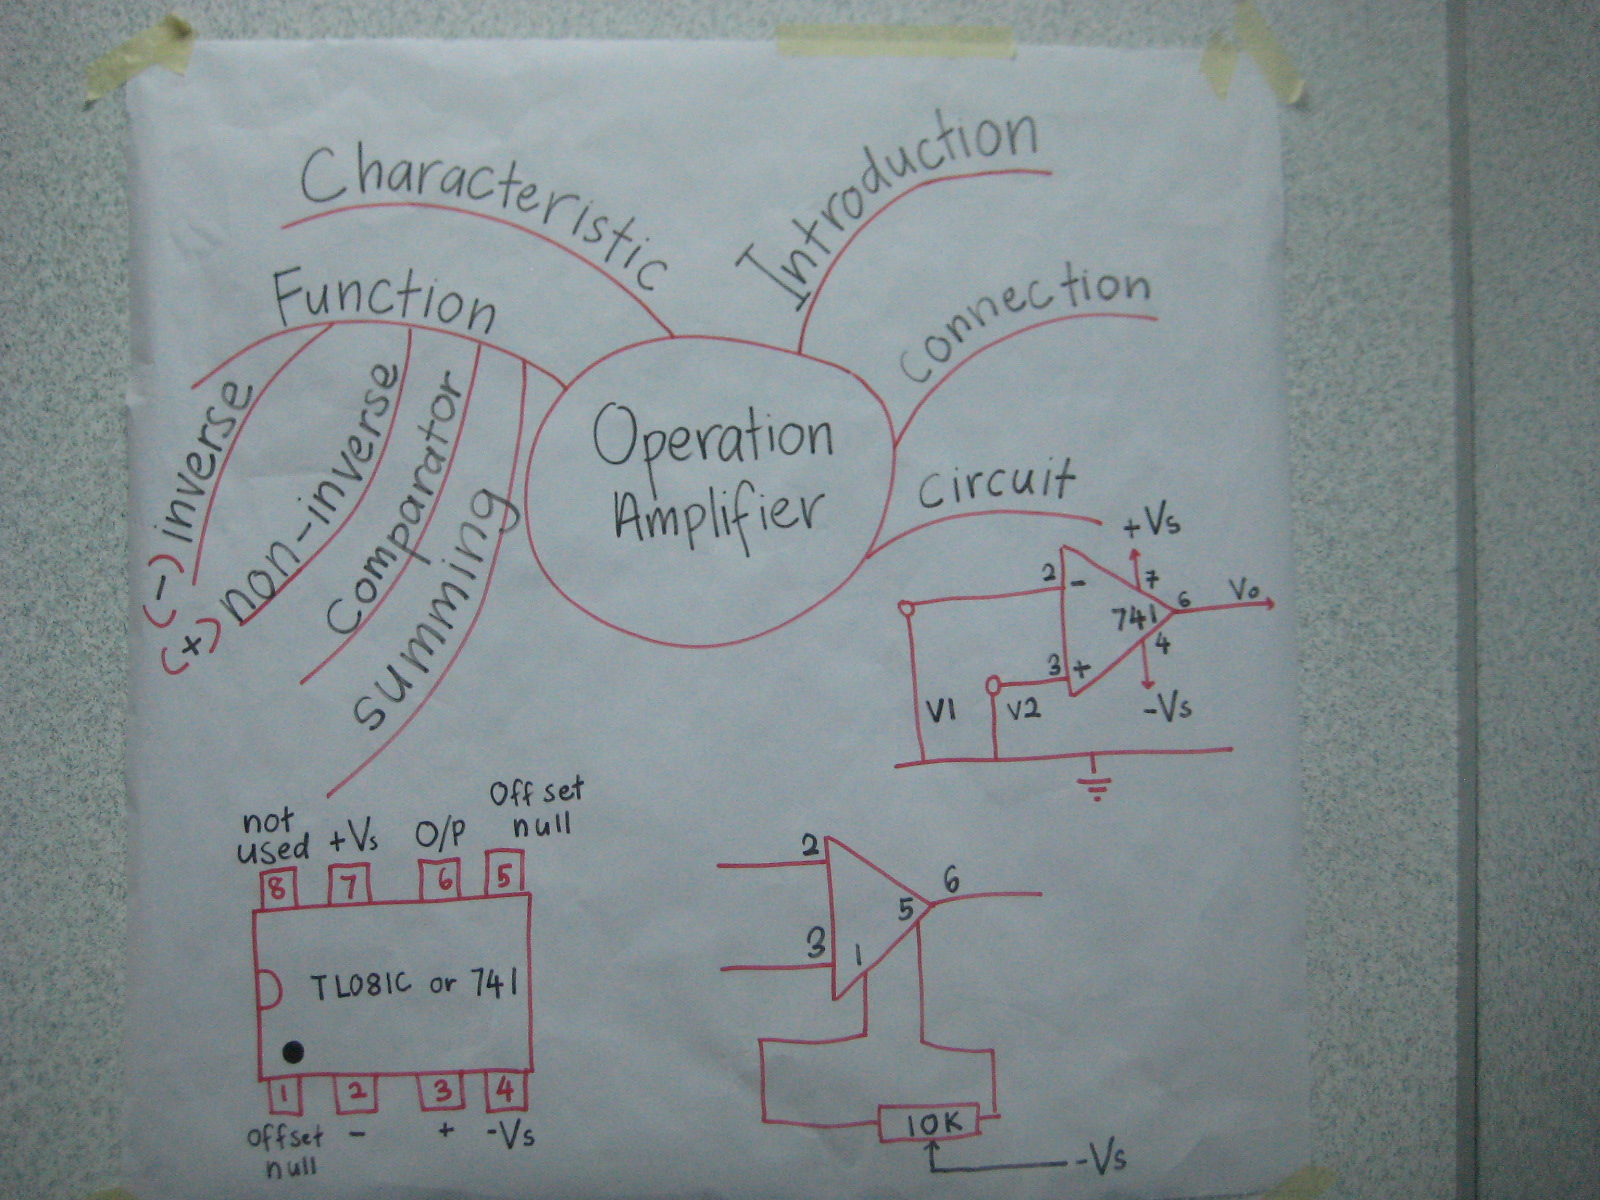 Characteristic
Introduction
Function
Connection
(-) inverse
(+) non-inverse
Comparator
summing
Operation
Amplifier
Circuit
+Vs
2
-
7
741
6
Vo
3
+
4
V1
V2
-Vs
not
used
+Vs
O/P
Off set
null
8
7
6
5
TL081C or 741
1
2
3
4
Offset
null
-
+
-Vs
2
6
5
3
1
10K
-Vs